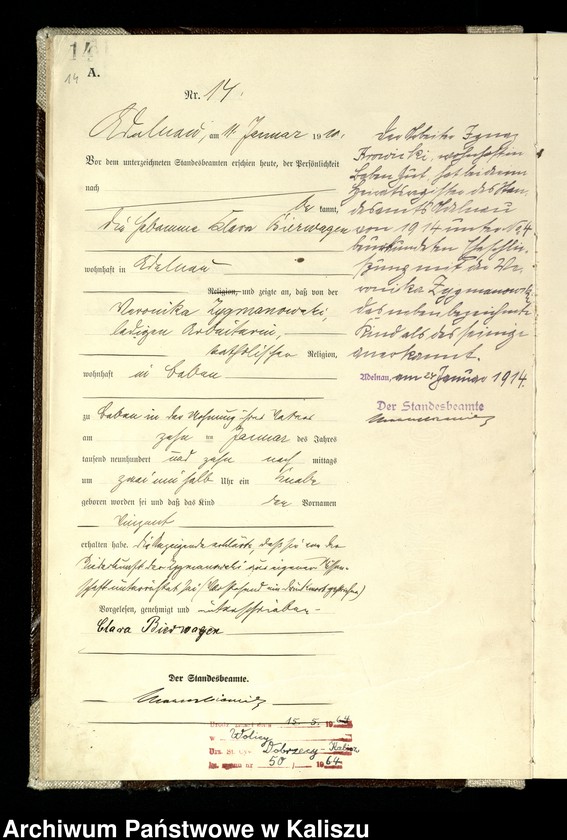 14
14
A.
Nr. 14.
Adelnau, am 11 Januar 1910.
Vor dem unterzeichneten Standesbeamten erschien heute, der Persönlichkeit
nach
be kannt,
die Hebamme Klara Bierwagen
wohnhaft in Adelnau
Religion, und zeigte an, daß von der
Veronika Zygmanowski,
ledigen Arbeiterin,
katholischer Religion,
wohnhaft in
zu in der Wohnung ihres Vaters
am zehn ten Januar des Jahres
tausend neunhundert und zehn nach mittags
um zwei ein halb Uhr ein Knabe
geboren worden sei und daß das Kind den Vornamen
Vinzent
erhalten habe. Die Anzeigende erklärte, daß sie von der
Niederkunft der Zygmanowski aus eigener Wissen-
schaft unterrichtet sei (Vorstehend ein Druckwort gestrichen)
Vorgelesen, genehmigt und unterschrieben
Clara Bierwagen
Der Standesbeamte.
Der Arbeiter Ignaz
wohnhaft in
hat in dem
Heiratsregister des Stan-
desamts Adelnau
von 1914 unter Nr 4
beurkundeten Eheschlie-
ßung mit der Ve-
ronika Zygmanowski
das neben bezeichnete
Kind als das seinige
anerkannt.
Adelnau, am 24 Januar 1914.
Der Standesbeamte
15. 5. 1964
w Wolicy
Dobrzecy - Kalisz
nr 50 / 1964
Archiwum Państwowe w Kaliszu